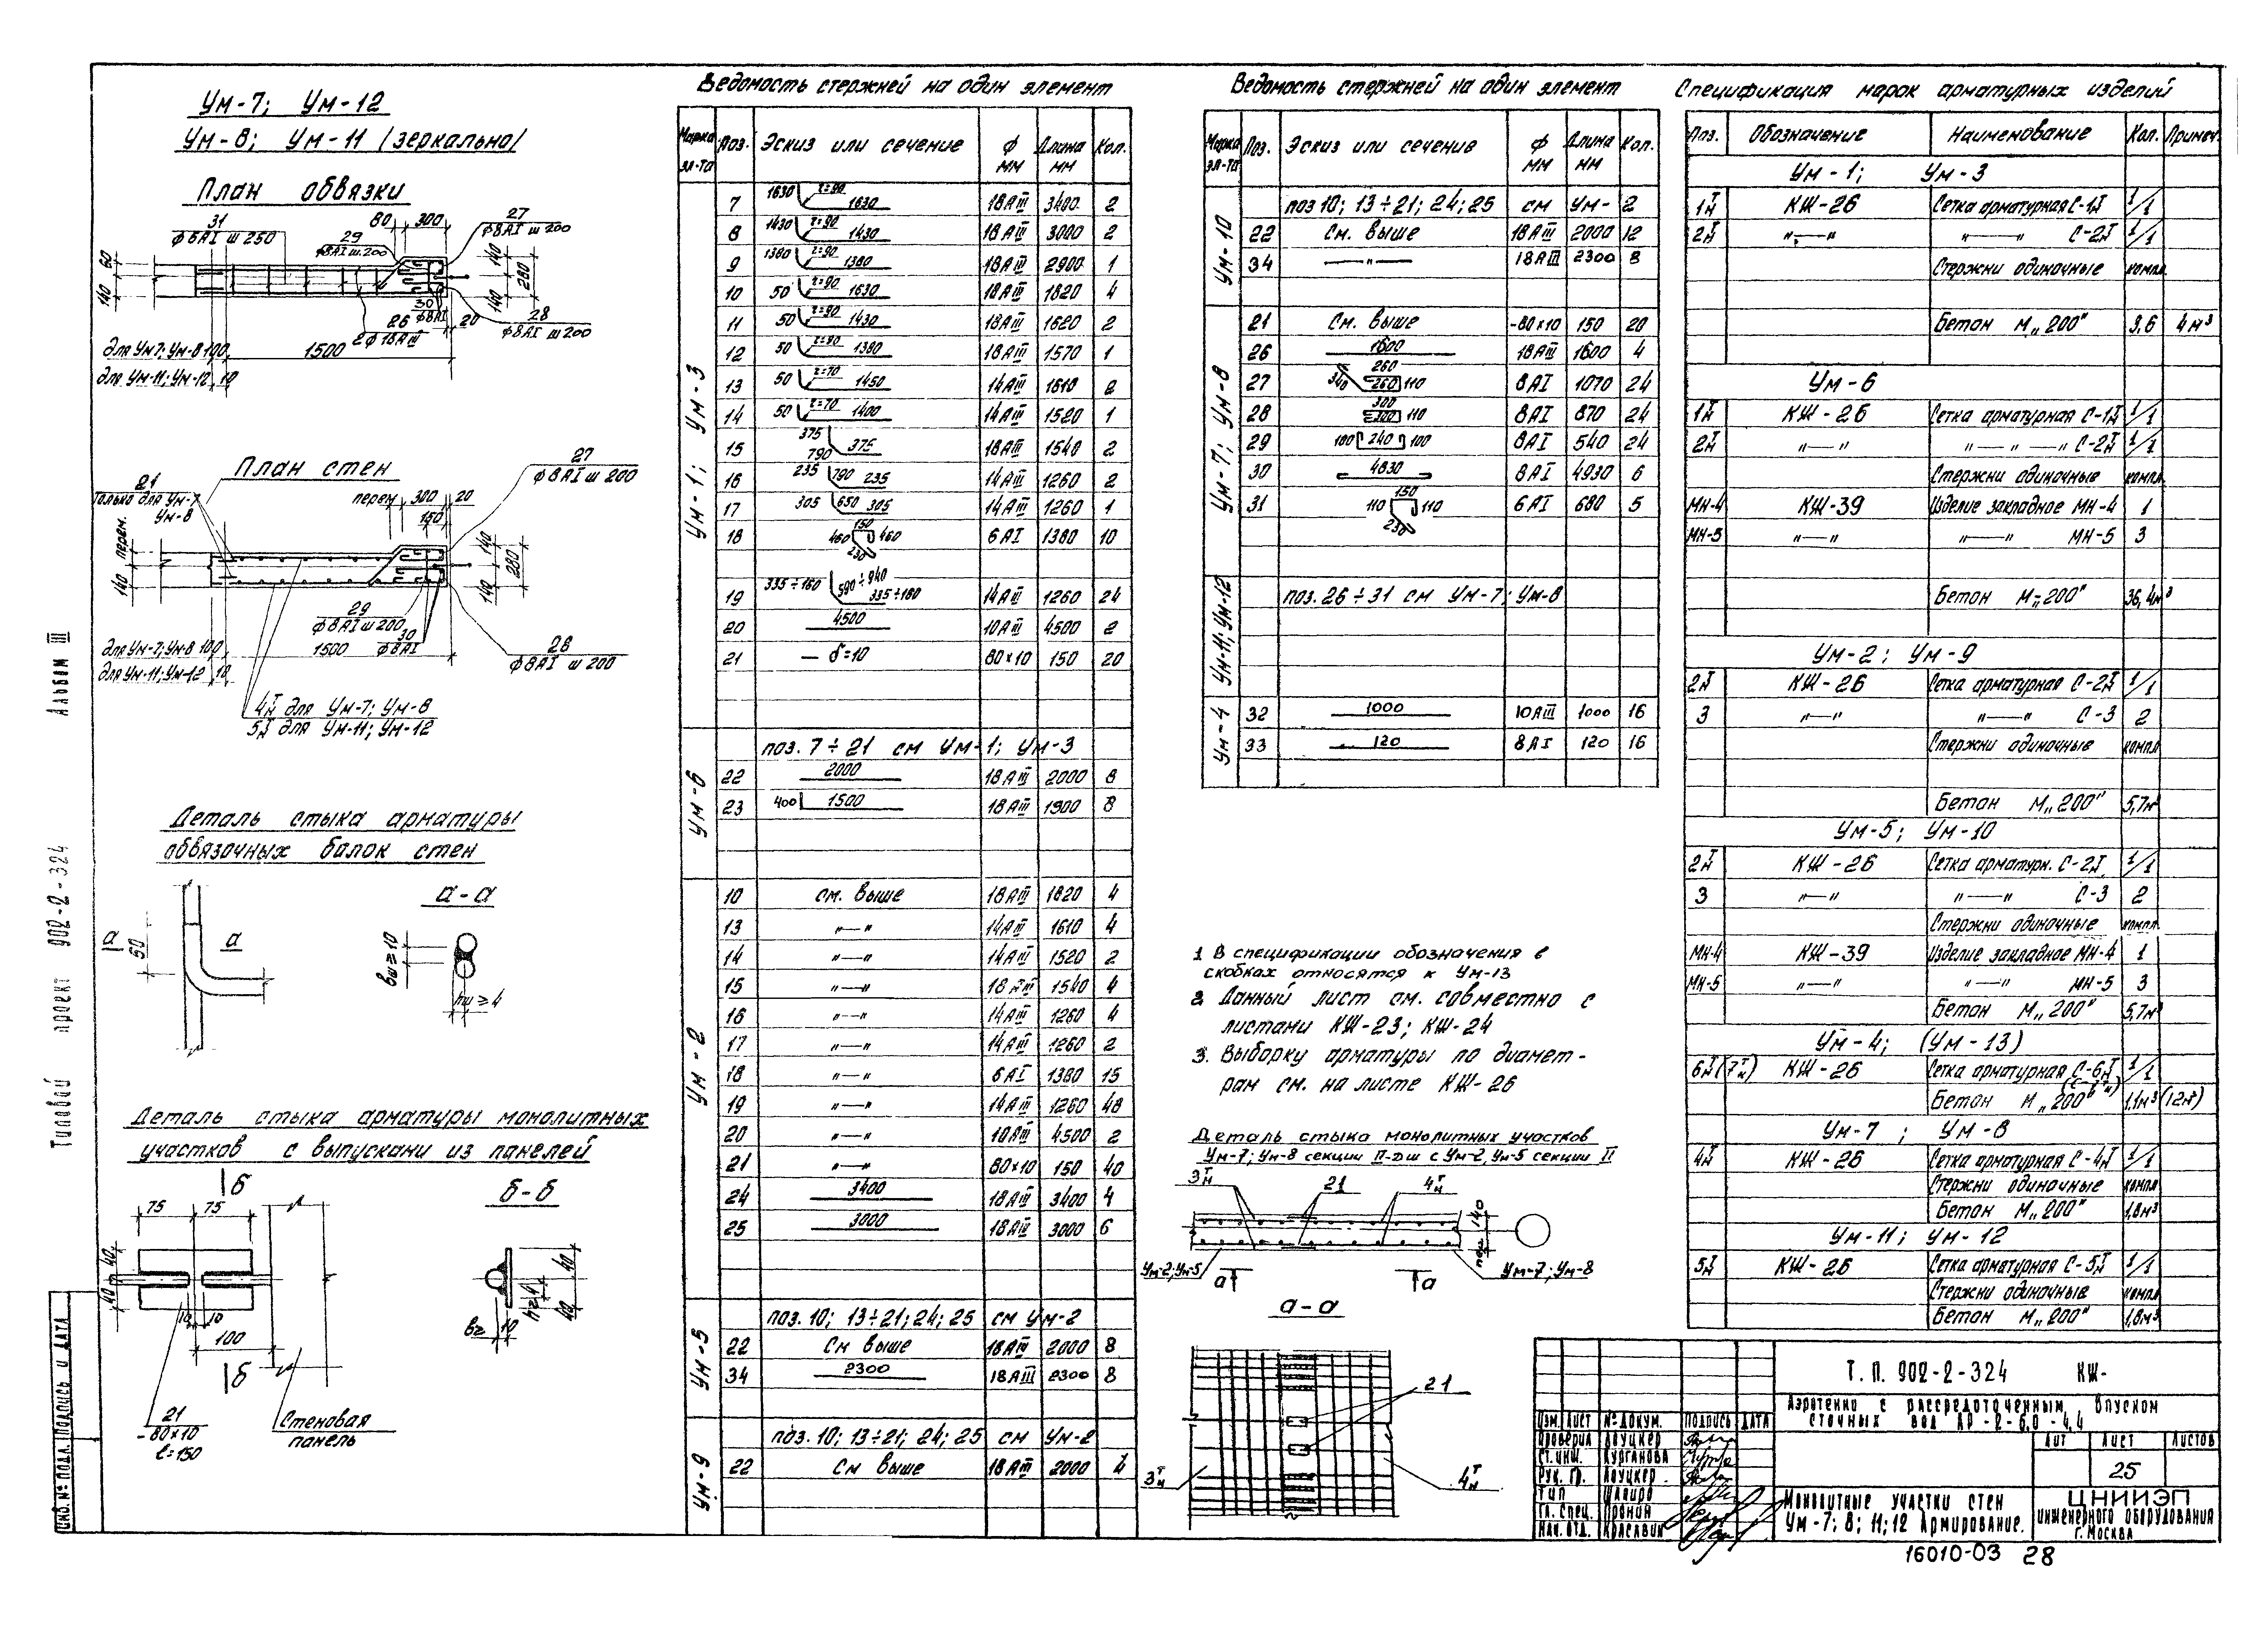 Ум-7; Ум-12
Ум-8; Ум-11 /зеркально/
План обвязки
31
ф6АI ш 250
29
ф8АI ш.200
80
300
27
ф8АI ш 200
60
140
140
280
140
30
ф8АI
26
2ф18АIII
20
28
ф8АI ш 200
для Ум7; Ум-8 100
1500
для Ум-11; Ум-12 10
План стен
21
только для Ум-7
Ум-8
перем
300
20
150
27
ф8АI ш 200
перем.
140
140
280
140
29
ф8АI ш 200
30
ф8АI
28
ф8АI ш 200
для Ум-7; Ум-8 100
1500
для Ум-11; Ум-12 10
4Т/Н для Ум-7; Ум-8
5Т/Н для Ум-11; Ум-12
Деталь стыка арматуры
обвязочных балок стен
а
50
а
а-а
вш≥10
hш≥4
Деталь стыка арматуры монолитных
участков с выпусками из панелей
б
75
75
40
40
10
10
100
б
21
-80×10
ℓ=150
Стеновая
панель
б-б
40
40
10
Ведомость стержней на один элемент
Марка эл-та Поз. Эскиз или сечение ф мм Длина мм Кол.
Ум-1; Ум-3
7 1630 r=90 1630 18АIII 3400 2
8 1430 r=90 1430 18АIII 3000 2
9 1380 r=90 1380 18АIII 2900 1
10 50 r=90 1630 18АIII 1820 4
11 50 r=90 1430 18АIII 1620 2
12 50 r=90 1380 18АIII 1570 1
13 50 r=70 1450 14АIII 1610 2
14 50 r=70 1400 14АIII 1520 1
15 375 790 375 18АIII 1540 2
16 235 790 235 14АIII 1260 2
17 305 650 305 14АIII 1260 1
18 460 150 460 230 6АI 1380 10
19 335÷160 590÷940 335÷160 14АIII 1260 24
20 4500 10АIII 4500 2
21 — δ=10 80×10 150 20
Ум-6
поз. 7÷21 см Ум-1; Ум-3
22 2000 18АIII 2000 8
23 400 1500 18АIII 1900 8
Ум-2
10 см. выше 18АIII 1820 4
13 "—" 14АIII 1610 4
14 "—" 14АIII 1520 2
15 "—" 18АIII 1540 4
16 "—" 14АIII 1260 4
17 "—" 14АIII 1260 2
18 "—" 6АI 1380 15
19 "—" 14АIII 1260 48
20 "—" 10АIII 4500 2
21 "—" 80×10 150 40
24 3400 18АIII 3400 4
25 3000 18АIII 3000 6
Ум-5
поз. 10; 13÷21; 24; 25 см Ум-2
22 См выше 18АIII 2000 8
34 2300 18АIII 2300 8
Ум-9
поз. 10; 13÷21; 24; 25 см Ум-2
22 См выше 18АIII 2000 4
Ведомость стержней на один элемент
Марка эл-та Поз. Эскиз или сечение ф мм Длина мм Кол.
Ум-10
поз 10; 13÷21; 24; 25 см Ум-2
22 См. выше 18АIII 2000 12
34 —"— 18АIII 2300 8
Ум-7; Ум-8
21 См. выше -80×10 150 20
26 1600 18АIII 1600 4
27 340 260 260 110 8АI 1070 24
28 300 300 110 8АI 870 24
29 100 240 100 8АI 540 24
30 4830 8АI 4930 6
31 110 150 110 230 6АI 680 5
Ум-11; Ум-12
поз. 26÷31 см Ум-7; Ум-8
Ум-4
32 1000 10АIII 1000 16
33 120 8АI 120 16
1 В спецификации обозначения в
скобках относятся к Ум-13
2 Данный лист см. совместно с
листами КЖ-23; КЖ-24
3. Выборку арматуры по диамет-
рам см. на листе КЖ-26
Деталь стыка монолитных участков
Ум-7; Ум-8 секции II-ош с Ум-2, Ум-5 секции II
3Т/Н
21
4Т/Н
140
Ум-2; Ум-5
Ум-7; Ум-8
а
а
а-а
21
3Т/Н
4Т/Н
Спецификация марок арматурных изделий
Поз. Обозначение Наименование Кол. Примеч.
Ум-1; Ум-3
1Т/Н КЖ-26 Сетка арматурная С-1Т/Н 1/1
2Т/Н "—" "—" С-2Т/Н 1/1
Стержни одиночные компл.
Бетон М„200" 3,6 4м³
Ум-6
1Т/Н КЖ-26 Сетка арматурная С-1Т/Н 1/1
2Т/Н "—" "—"—" С-2Т/Н 1/1
Стержни одиночные компл
МН-4 КЖ-39 Изделие закладное МН-4 1
МН-5 "—" "—" МН-5 3
Бетон М-„200" 36,4м³
Ум-2; Ум-9
2Т/Н КЖ-26 Сетка арматурная С-2Т/Н 1/1
3 "—" "—" С-3 2
Стержни одиночные компл
Бетон М„200" 5,7м³
Ум-5; Ум-10
2Т/Н КЖ-26 Сетка арматурн. С-2Т/Н 1/1
3 "—" "—" С-3 2
Стержни одиночные компл.
МН-4 КЖ-39 Изделие закладное МН-4 1
МН-5 "—" "—" МН-5 3
Бетон М„200" 5,7м³
Ум-4; (Ум-13)
6Т/Н (7Т/Н) КЖ-26 Сетка арматурная С-6Т/Н 1/1
Бетон М„200" 1,1м³ (1,2м³)
Ум-7; Ум-8
4Т/Н КЖ-26 Сетка арматурная С-4Т/Н 1/1
Стержни одиночные компл
Бетон М„200" 1,8м³
Ум-11; Ум-12
5Т/Н КЖ-26 Сетка арматурная С-5Т/Н 1/1
Стержни одиночные компл
Бетон М„200" 1,8м³
Т.П. 902-2-324 КЖ-
Аэротенки с рассредоточенным впуском
сточных вод АР-2-6,0-4,4
Изм. Лист № докум. Подпись Дата
Проверил Лоуцкер
Ст. инж. Курганова
Рук. гр. Лоуцкер
Гип Шапиро
Гл. спец. Пронин
Нач. отд. Красавин
Лит Лист Листов
25
Монолитные участки стен
Ум-7; 8; 11; 12 Армирование.
ЦНИИЭП
инженерного оборудования
г. Москва
16010-03 28
Альбом III
Типовой проект 902-2-324
Инв. № подл. Подпись и дата